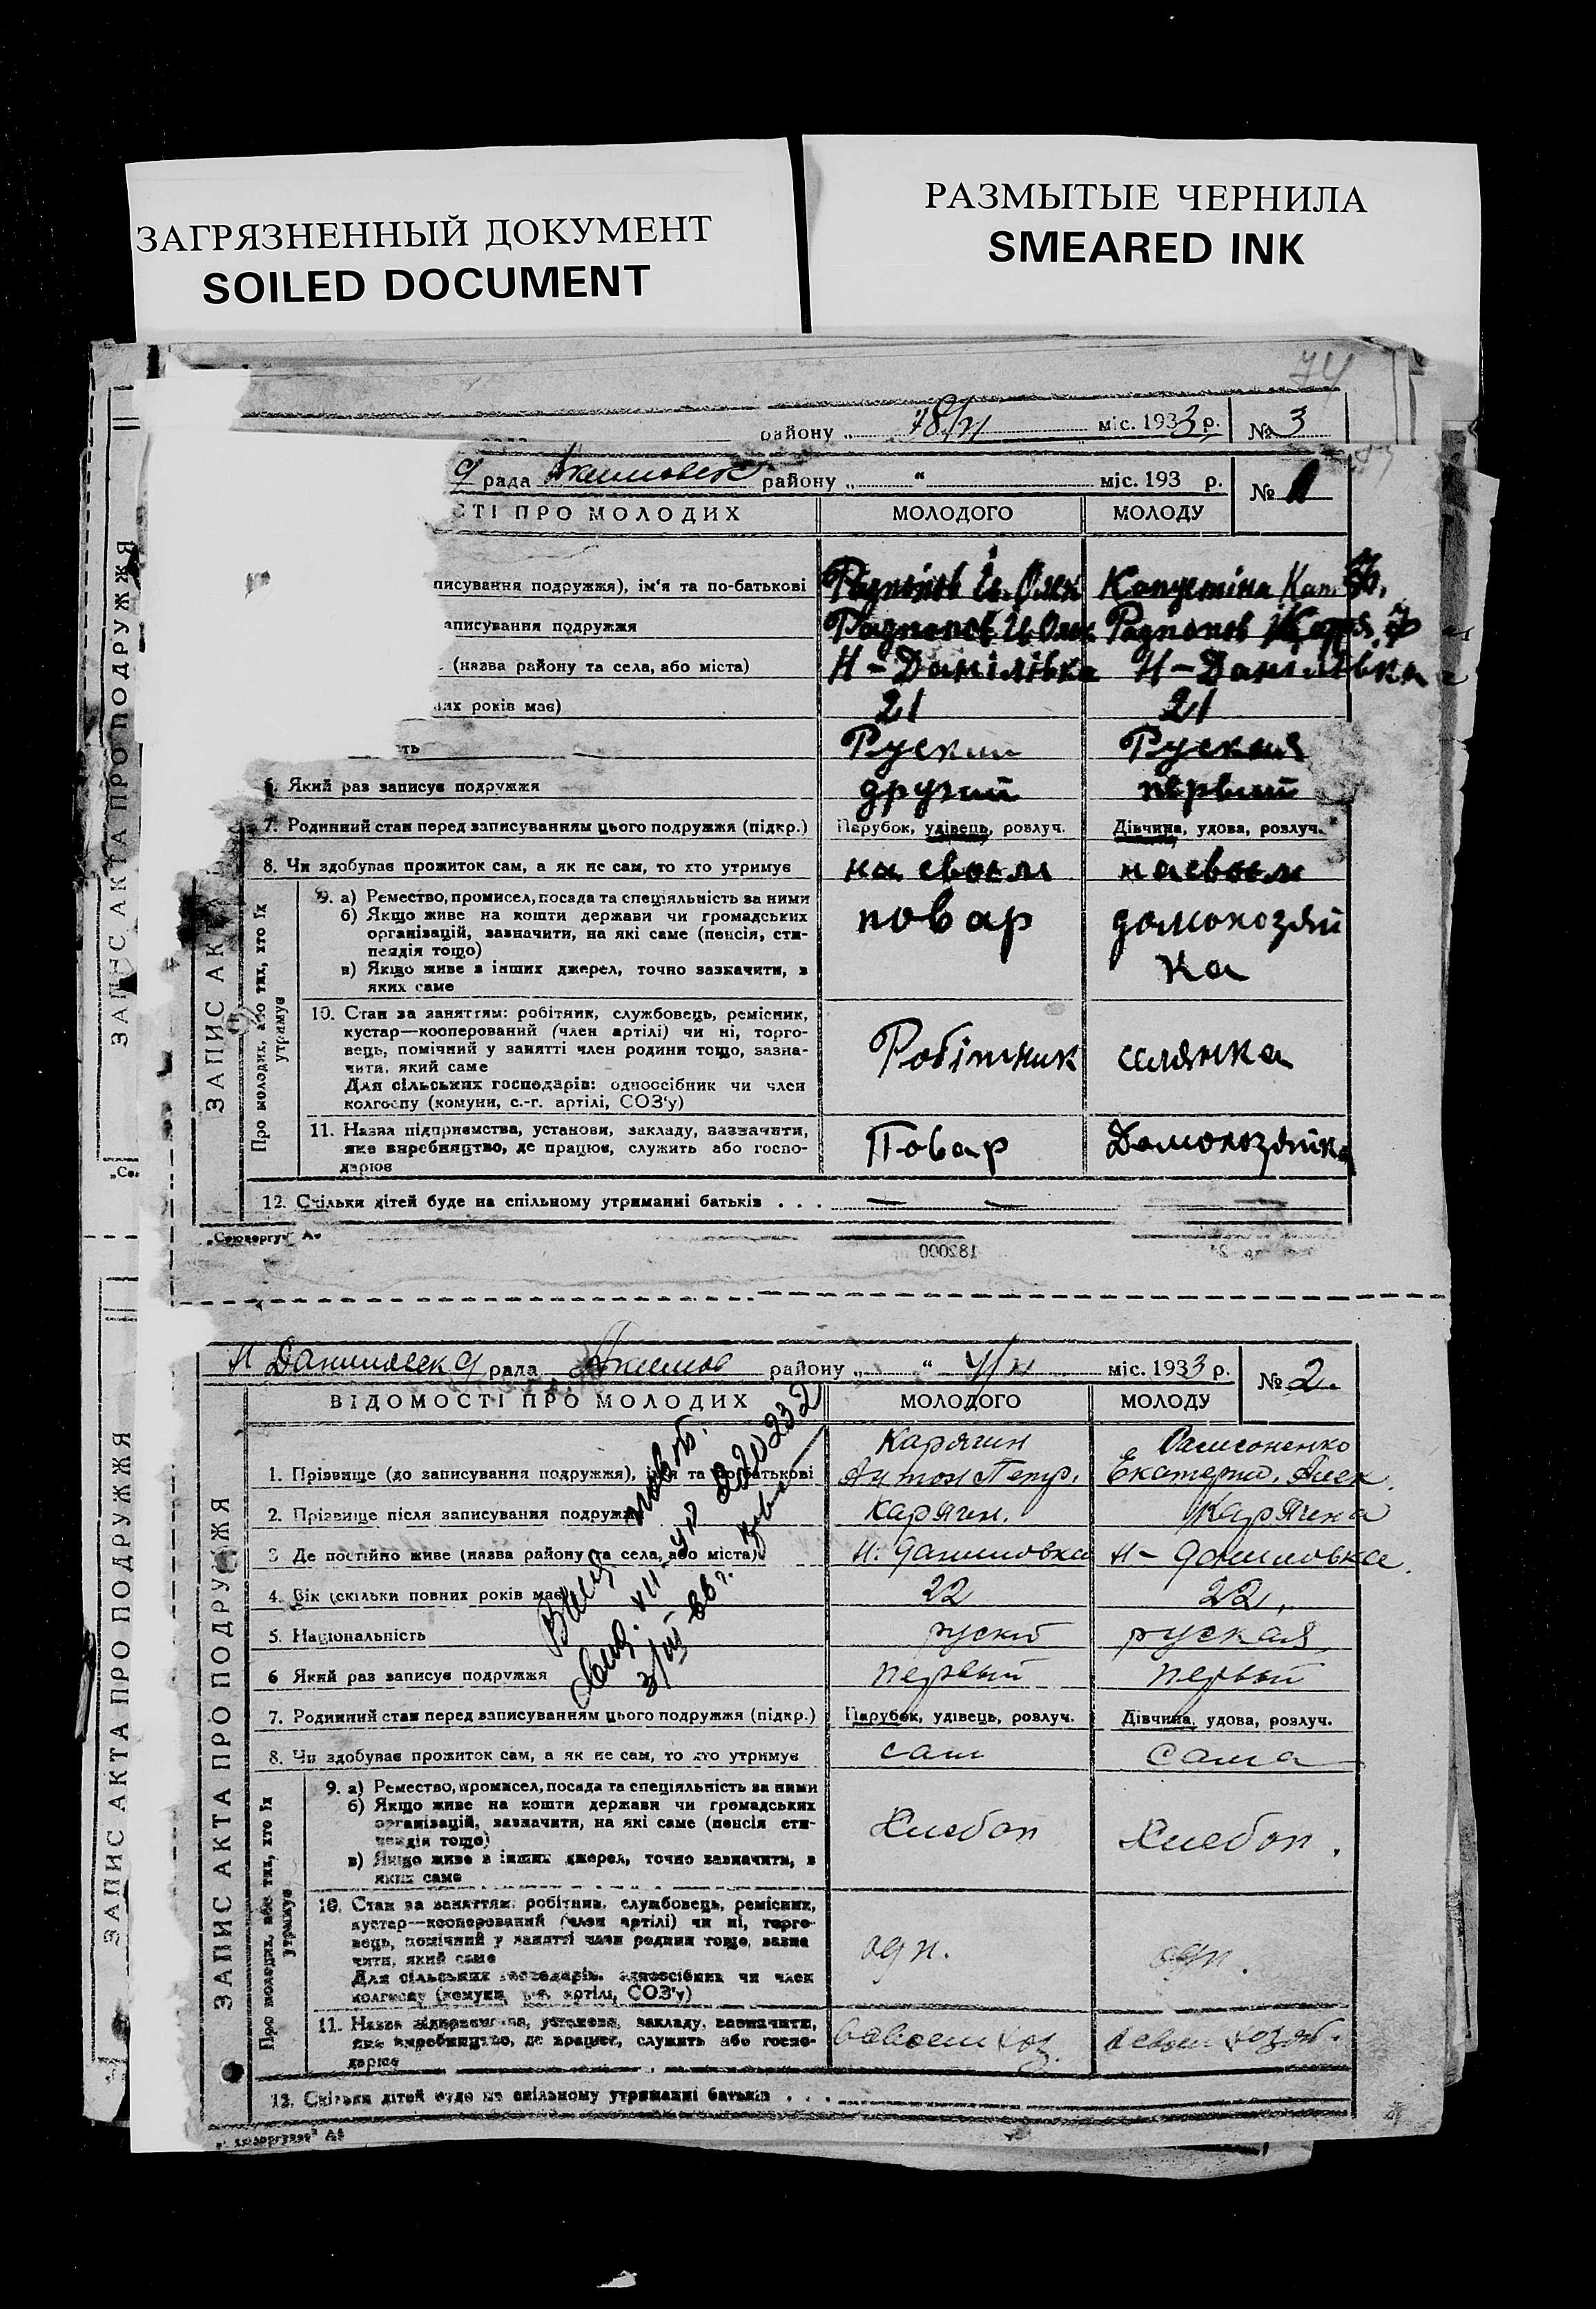 ЗАГРЯЗНЕННЫЙ ДОКУМЕНТ
SOILED DOCUMENT
РАЗМЫТЫЕ ЧЕРНИЛА
SMEARED INK
74
району „ міс. 1933 р. № 3
рада Акимовск району „ “ міс. 193 р. № 1
СТІ ПРО МОЛОДИХ МОЛОДОГО МОЛОДУ
писування подружжя), ім'я та по-батькові Капустіна
аписування подружжя
(назва району та села, або міста) Н-Данілівка Н-Данилівка
них років має) 21 21
ть Руский Руская
6. Який раз записує подружжя другий первий
7. Родинний стан перед записуванням цього подружжя (підкр.) Парубок, удівець, розлуч. Дівчина, удова, розлуч.
8. Чи здобуває прожиток сам, а як не сам, то хто утримує на своем на своем
9. а) Ремество, промисел, посада та спеціяльність за ними
б) Якщо живе на кошти держави чи громадських
організацій, зазначити, на які саме (пенсія, сти-
пендія тощо)
в) Якщо живе з інших джерел, точно зазначити, з
яких саме
повар домохозяй
ка
10. Стан за заняттям: робітник, службовець, ремісник,
кустар—кооперований (член артілі) чи ні, торго-
вець, помічний у занятті член родини тощо, зазна-
чити, який саме
Для сільських господарів: одноосібник чи член
колгоспу (комуни, с.-г. артілі, СОЗ'у)
Робітник селянка
11. Назва підприємства, установи, закладу, зазначити,
яке виробництво, де працює, служить або госпо-
дарює
Повар Домохозяйка
12. Скільки дітей буде на спільному утриманні батьків . . . — —
Про молодих, або тих, хто їх утримує
ЗАПИС АК
ЗАПИС АКТА ПРО ПОДРУЖЖЯ
182000
Н Даниловск рада Акимов району „ “ міс. 1933 р. № 2.
ВІДОМОСТІ ПРО МОЛОДИХ МОЛОДОГО МОЛОДУ
1. Прізвище (до записування подружжя), ім'я та по-батькові
Карягин
Антон Петр. Екатерин. Алек.
2. Прізвище після записування подружжя Карягин. Карягина
3. Де постійно живе (назва району та села, або міста) Н. Даниловка Н-Даниловка.
4. Вік (скільки повних років має) 22 22,
5. Національність руский руская
6 Який раз записує подружжя первый первый
7. Родинний стан перед записуванням цього подружжя (підкр.) Парубок, удівець, розлуч. Дівчина, удова, розлуч.
8. Чи здобуває прожиток сам, а як не сам, то хто утримує сам сама
9. а) Ремество, промисел, посада та спеціяльність за ними
б) Якщо живе на кошти держави чи громадських
організацій, зазначити, на які саме (пенсія сти-
пендія тощо)
в) Якщо живе з інших джерел, точно зазначити, з
яких саме
Хлебоп Хлебоп.
10. Стан за заняттям: робітник, службовець, ремісник,
кустар—кооперований (член артілі) чи ні, торго-
вець, помічний у занятті член родини тощо, зазна
чити, який саме
Для сільських господарів: одноосібник чи член
колгоспу (комуни, с.-г. артілі, СОЗ'у)
11. Назва підприємства, установи, закладу, зазначити,
яке виробництво, де працює, служить або госпо-
дарює
12. Скільки дітей буде на спільному утриманні батьків . . .
Про молодих, або тих, хто їх утримує
ЗАПИС АКТА ПРО ПОДРУЖЖЯ
ЗАПИС АКТА ПРО ПОДРУЖЖЯ